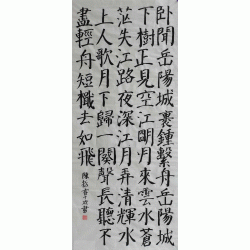 卧聞岳陽城裏鐘繫舟岳陽城
下樹正見空江明月來雲水蒼
茫失江路夜深江月弄清輝水
上人歌月下歸一闋聲長聽不
盡輕舟短檝去如飛
陳